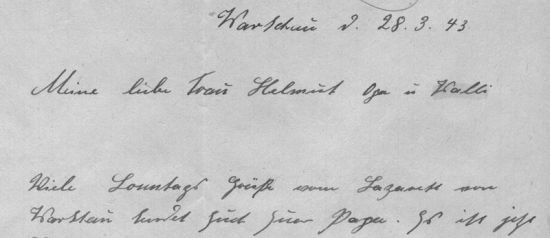 Warschau d. 28. 3. 43
Meine liebe Frau Helmut Opa u Walli
Viele Sonntags Grüße vom Lazarett von
Warschau sendet Euch Euer Papa. Es ist jetzt